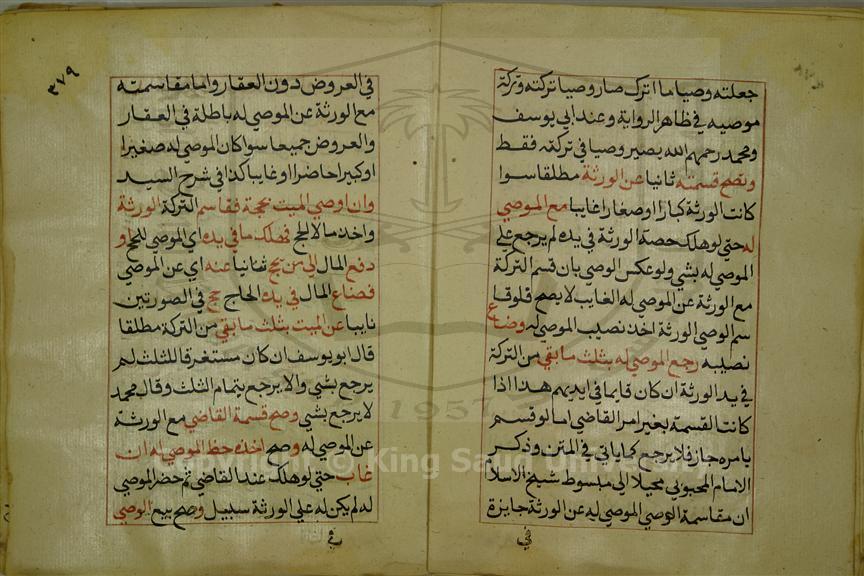 جعلته وصيا ما اترك صار وصيا تركته وتركة
موصيه في ظاهر الرواية وعند ابي يوسف
ومحمد رحمهم الله يصير وصيا في تركته فقط
وتصح قسمته ثانيا عن الورثة مطلقا سوا
كانت الورثة كبارا او صغارا غايبا مع الموصي
له حتي لو هلك حصة الورثة في يده لم يرجع علي
الموصي له بشي ولو عكس الوصي بان قسم التركة
مع الورثة عن الموصي له الغايب لا يصح فلو قا
سم الوصي الورثة اخذ نصيب الموصي له وضاع
نصيبه رجع الموصي له بثلث ما بقي من التركة
في يد الورثة ان كان قايما في ايديهم هذا اذا
كانت القسمة بغير امر القاضي اما لو قسم
بامره جاز فلا يرجع كما ياتي في المتن وذكر
الامام المحبوبي محيلا الي مبسوط شيخ الاسلا
ان مقاسمة الوصي الموصي له عن الورثة جايزة
في
٣٧٩
في العروض دون العقار واما مقاسمته
مع الورثة عن الموصي له باطلة في العقار
والعروض جميعا سوا كان الموصي له صغيرا
او كبيرا حاضرا او غايبا كذا في شرح السيد
وان اوصي الميت بحجة فقاسم التركة الورثة
واخذ مالا لحج فهلك ما في يده اي الموصي للحج او
دفع المال الي من يحج ثانيا عنه اي عن الموصي
فضاع المال في يده الحاج حج في الصورتين
نايبا عن الميت بثلث ما بقي من التركة مطلقا
قال ابو يوسف ان كان مستغرقا للثلث لم
يرجع بشي والا يرجع بتمام الثلث وقال محمد
لا يرجع بشي وصح قسمة القاضي مع الورثة
عن الموصي له وصح اخذه حظ الموصي له ان
غاب حتي لو هلك عند القاضي ثم حضر الموصي
له لم يكن له علي الورثة سبيل وصح بيع الوصي
Copyright © King Saud University
1957